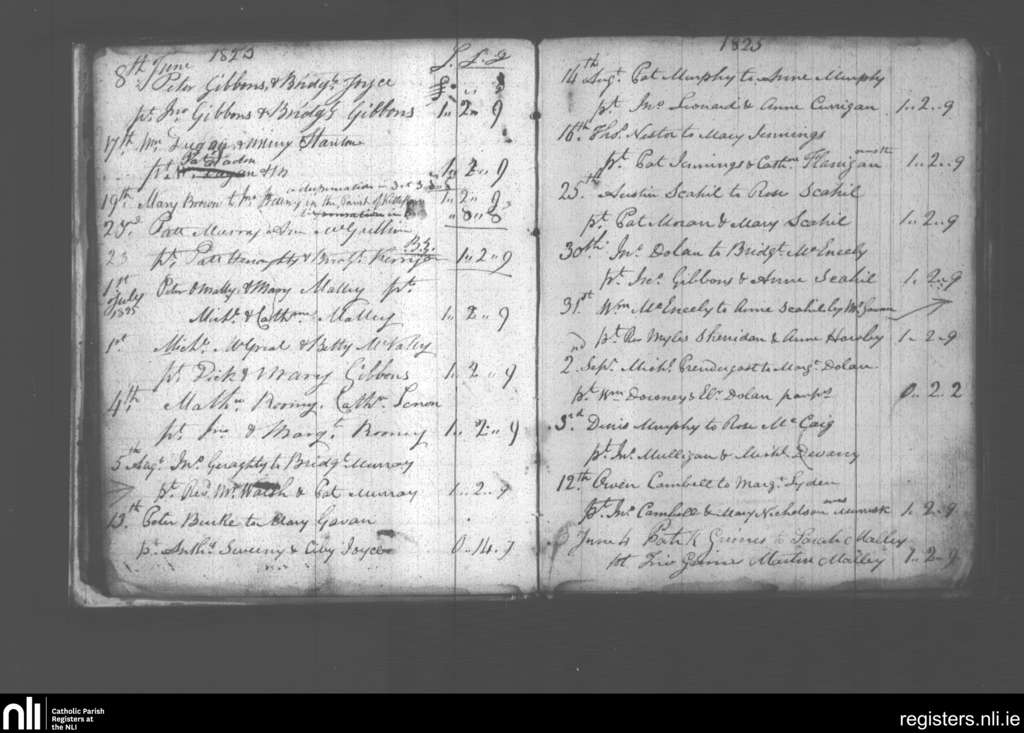 1825
£. S. D
8th June
Peter Gibbons & Bridgt. Joyce
pt. Jno Gibbons & Bridgt Gibbons 1 " 2 " 9
17th Wm. Dugan & Winny
Pat
pt. & 1 " 2 " 9
a dispensation
19th. Mary Brown to in the Parish of 1 " 2 " 9
" 8 " 8
23d. Patt Murray
23 pt. Patt Heraghty & Bridgt. Kerrigan 1 " 2 " 9
1st July 1825 Peter OMally & Mary Malley pt.
Michl. & Cathrne Malley 1 " 2 " 9
1st Michl. McGreal & Betty McNaley
pt. Dick & Mary Gibbons 1 " 2 " 9
4th. Mathw Rooney. Cathn. Lenon
pt. Jno & Margt. Rooney 1 " 2 " 9
5th Augt. Jno. Geraghty to Bridgt. Murray
pt. Revd. Mr. Walsh & Pat Murray 1 " 2 " 9
13th Peter Burke to Mary Gavan
pt. Anthy Sweeny & Joyce 0 " 14 " 7
1825
14th Augt. Pat Murphy to Anne Murphy
pt. Jno. Leonard & Anne Currigan 1 " 2 " 9
16th Thos. Nestor to Mary Jennings
pt. Pat Jennings & Cathne Flanigan 1 " 2 " 9
25th Austin Scahil to Rose Scahil
pt. Pat Moran & Mary Scahil 1 " 2 " 9
30th Jno. Dolan to Bridgt. McEneely
pt. Jno. Gibbons & Anne Scahil 1 " 2 " 9
31st Wm McEneely to Anne Scahil by Mr. Gavan
pt. Rev Myles Sheridan & Anne Hawley 1 " 2 " 9
2nd Sepr. Michl. Prendergast to Margt. Dolan
pt. Wm Downey & Elr. Dolan 0 " 2 " 2
3rd Denis Murphy to Rose McCaig
pt. Jno. Mulligan & Michl. Devany
12th Owen Cambell to Margt. Lyden
pt. Jno. Cambell & Mary Nicholson 1 " 2 " 9
June 4 Patk Grimes to Sarah Malley
pt Jno Martin Malley 1 " 2 " 9
nli
Catholic Parish
Registers at
the NLI
registers.nli.ie